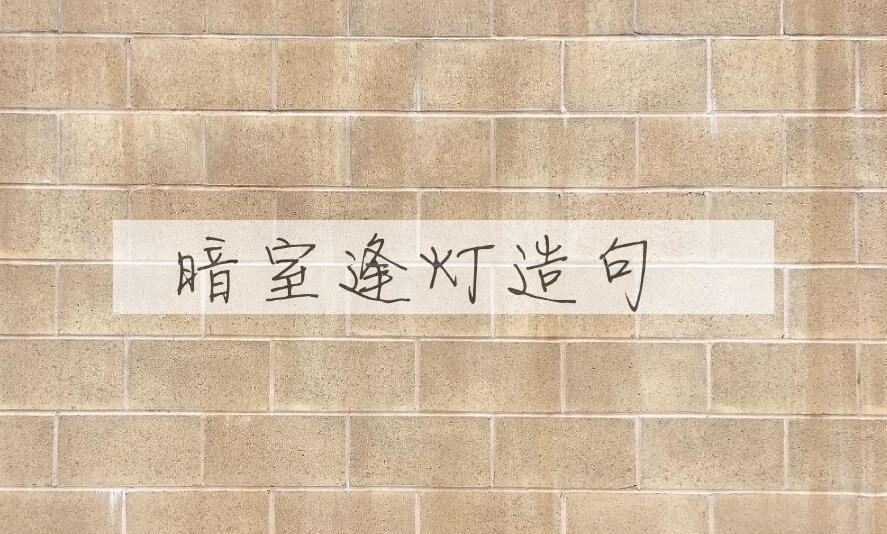 暗室逢灯造句